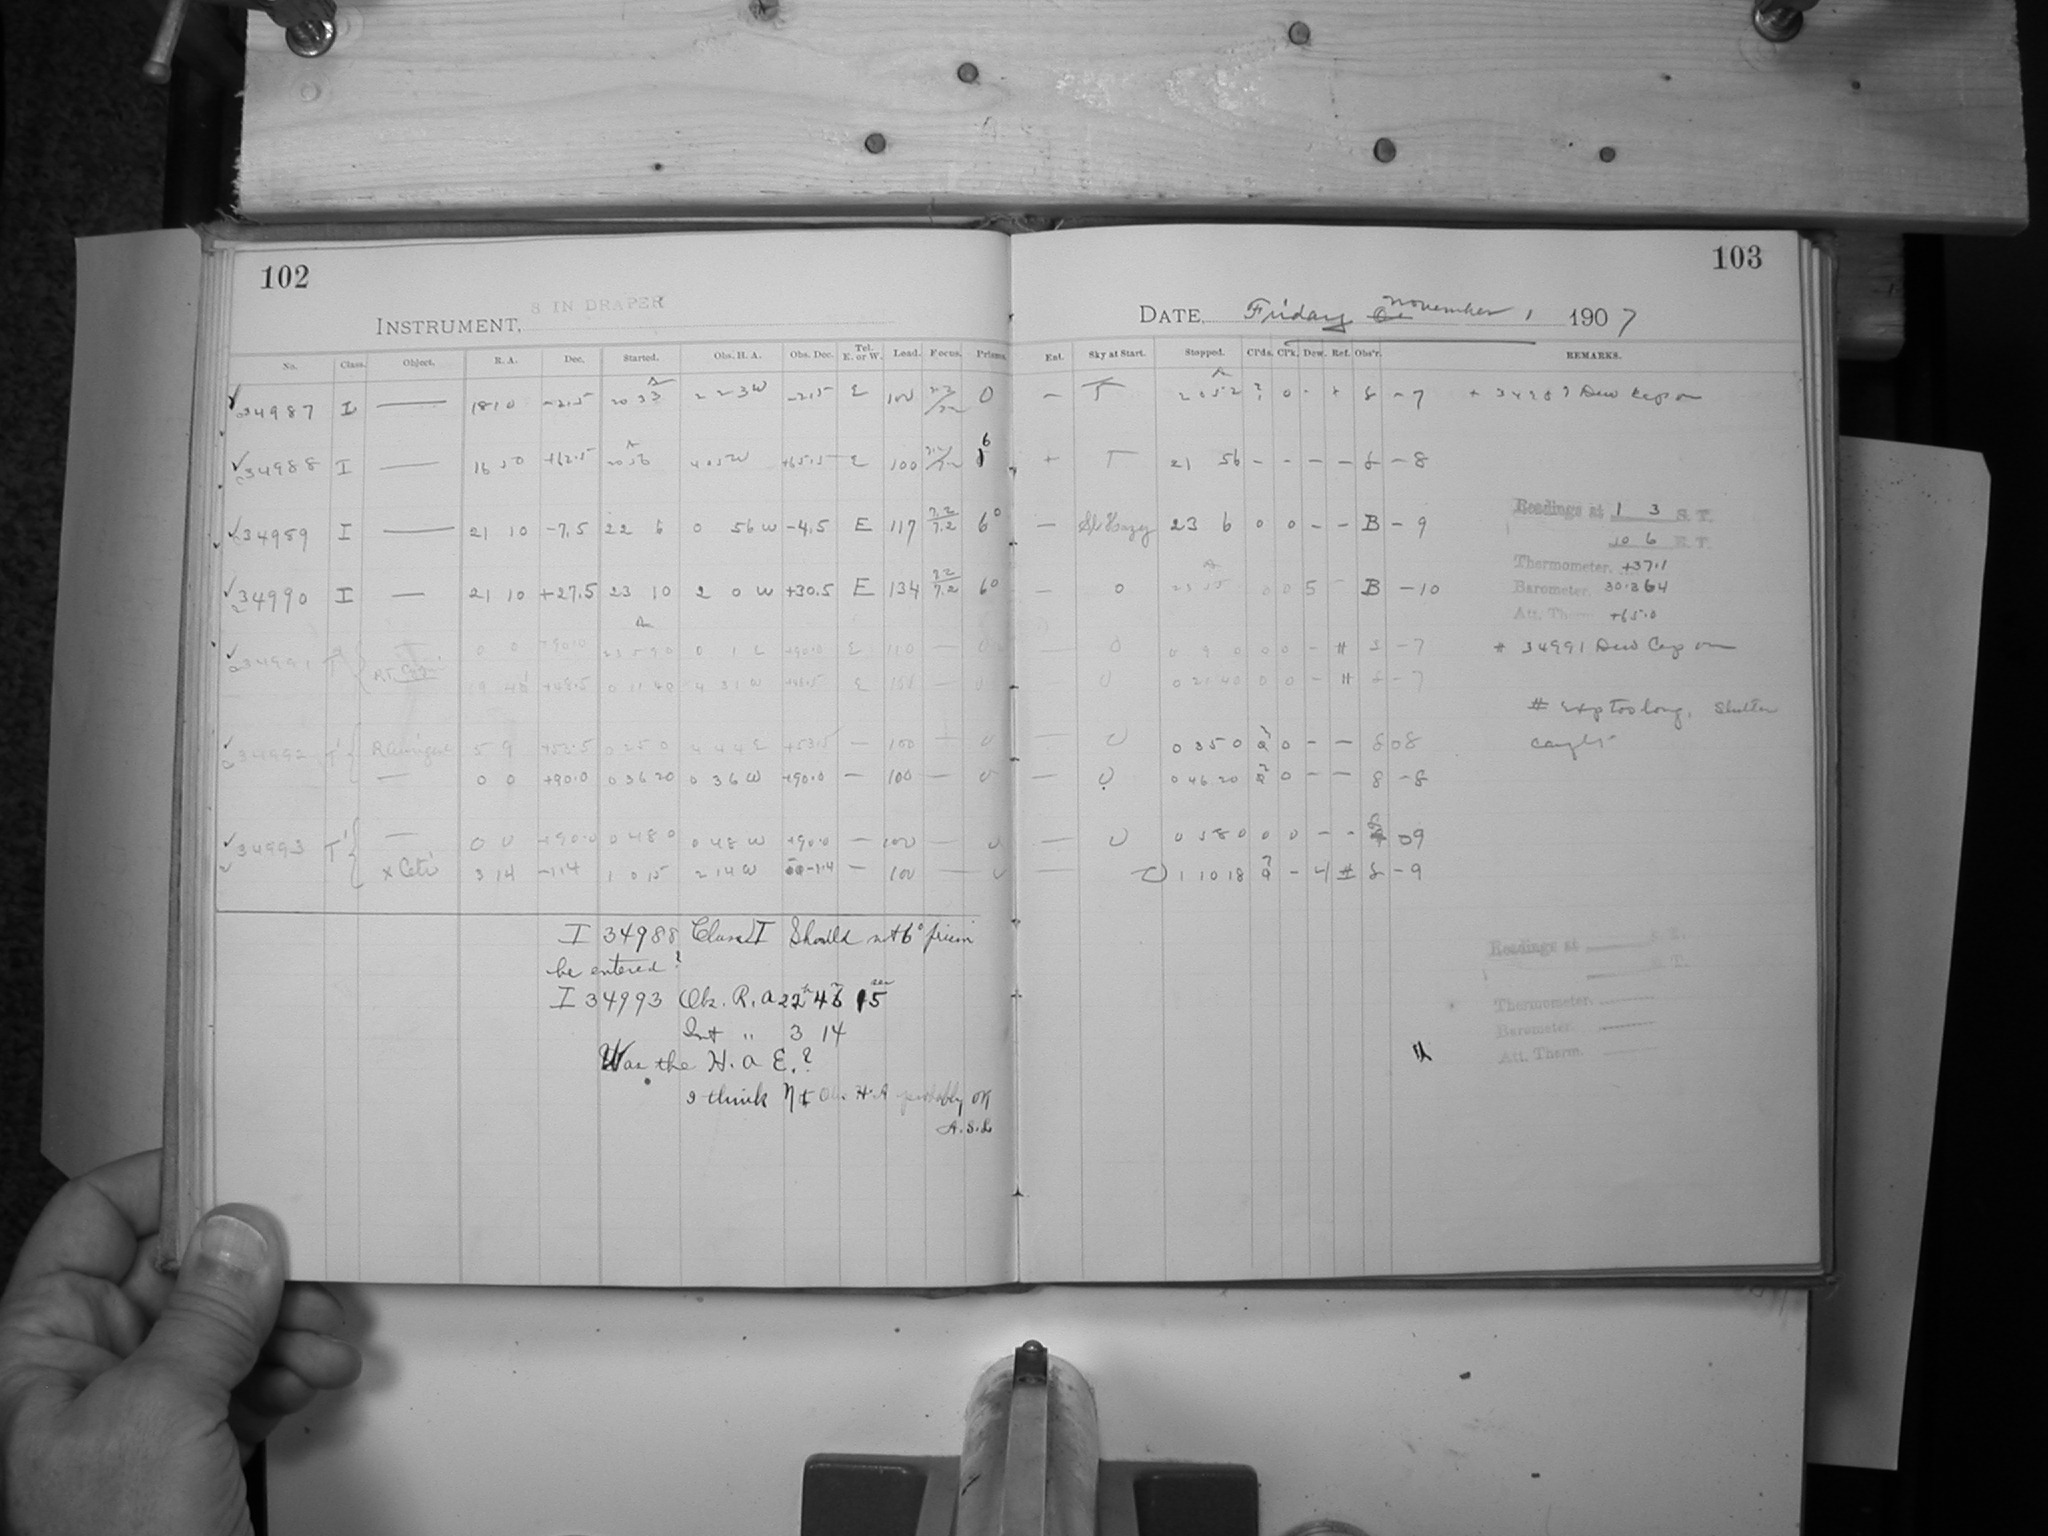 102
8 IN DRAPER
INSTRUMENT,
No. Class. Object. R. A. Dec. Started. Obs. H. A. Obs. Dec. Tel. E. or W. Lead. Focus. Prisms.
34987 I — 18 10 -2.5 20 33 2 23 W -2.5 E 100 0
34988 I — 16 50 +62.5 20 56 4 05 W +65.5 E 100 6
34989 I — 21 10 -7.5 22 6 0 56 W -4.5 E 117 7.2/7.2 6°
34990 I — 21 10 +27.5 23 10 2 0 W +30.5 E 134 7.2/7.2 6°
34991 0 0 +90.0 23 59 0 0 1 E +90.0 E 110 — 0
+48.5 0 11 40 4 31 W +48.5 E 100 — 0
34992 5 9 +53.5 0 25 0 4 44 E +53.5 — 100 0
— 0 0 +90.0 0 36 20 0 36 W +90.0 — 100 — 0
34993 — 0 0 +90.0 0 48 0 0 48 W +90.0 — 100 — 0
x Ceti 3 14 -1.4 1 0 15 2 14 W -1.4 — 100 — 0
I 34988 Class I Should not 6° prism
be entered?
I 34993 Obs. R. A 22h 46m 15sec
Int " 3 14
Was the H. A E.?
I think Not Obs. H.A probably OK
A.S.L
103
DATE, Friday November 1 1907
Ent. Sky at Start. Stopped. Cl'ds. Cl'k. Dew. Ref. Obs'r. REMARKS.
— T 20 52 ? 0 - + 8 - 7 + 34987 Dew Cap on
+ T 21 56 - - - - 8 - 8
— Sl Hazy 23 6 0 0 - - B - 9
— 0 0 0 5 - B - 10
Readings at 1 3 S. T.
10 6 E. T.
Thermometer. +37.1
Barometer. 30.364
Att. Therm. +65.0
— 0 0 9 0 0 0 - # 8 - 7 # 34991 Dew Cap on
— 0 0 21 40 0 0 - # 8 - 7
# exp too long, Shutter
caught
— 0 0 35 0 ? 0 - - 8 08
— 0 0 46 20 ? 0 - - 8 - 8
— 0 0 58 0 0 0 - - 8 09
— 0 1 10 18 ? - 4 # 8 - 9
Readings at S. T.
E. T.
Thermometer.
Barometer.
Att. Therm.